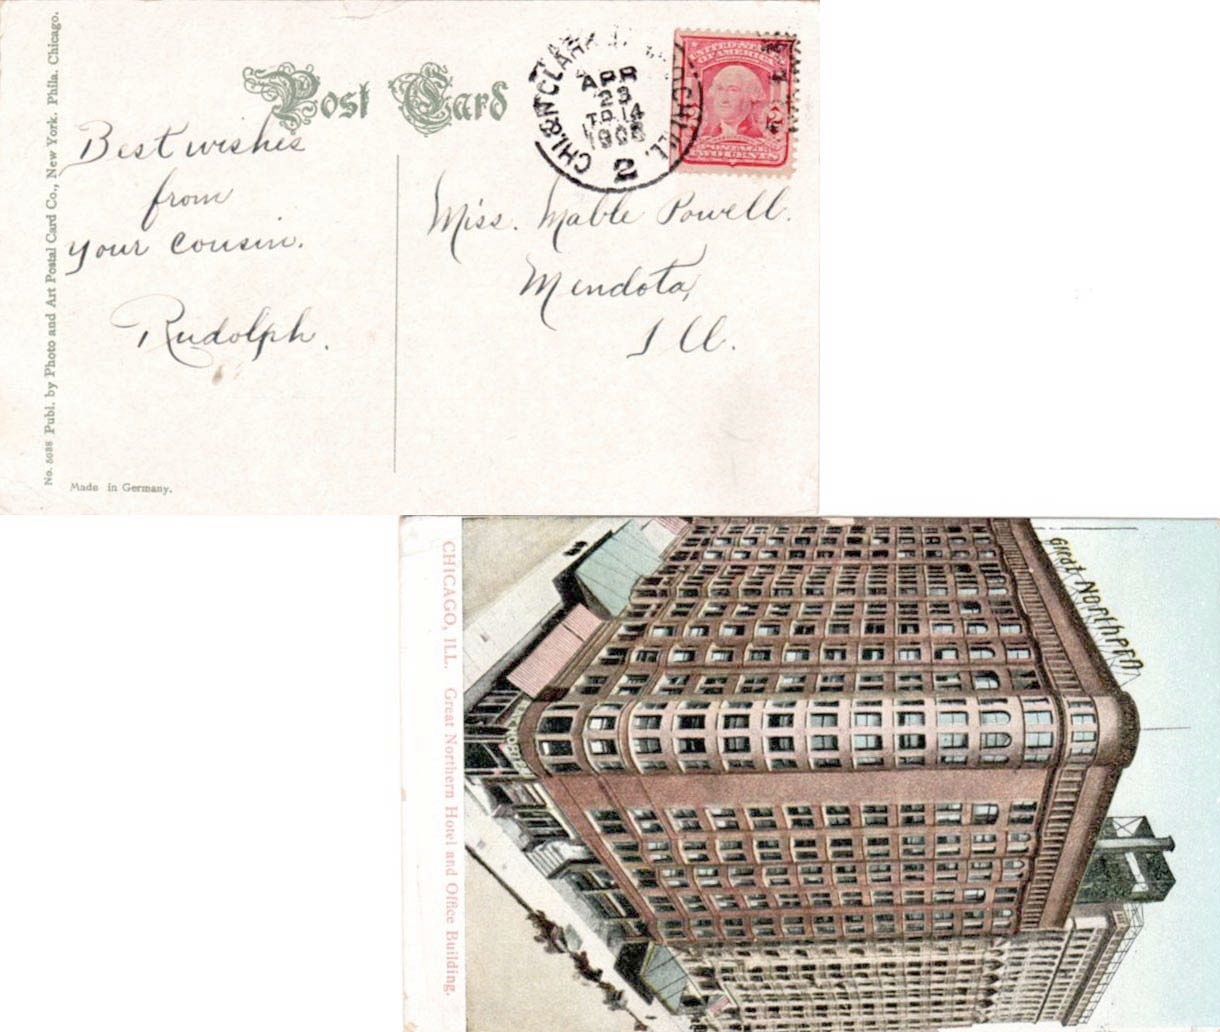 Post Card
Best wishes
from
your cousin.
Rudolph.
Miss. Mable Powell.
Mendota,
Ill.
No. 5088 Publ. by Photo and Art Postal Card Co., New York. Phila. Chicago.
Made in Germany.
CHI. & N CLARK
APR
23
TR. 14
1908
2
UNITED STATES
OF AMERICA
2
POSTAGE
TWO CENTS
CHICAGO, ILL. Great Northern Hotel and Office Building.
Great Northern